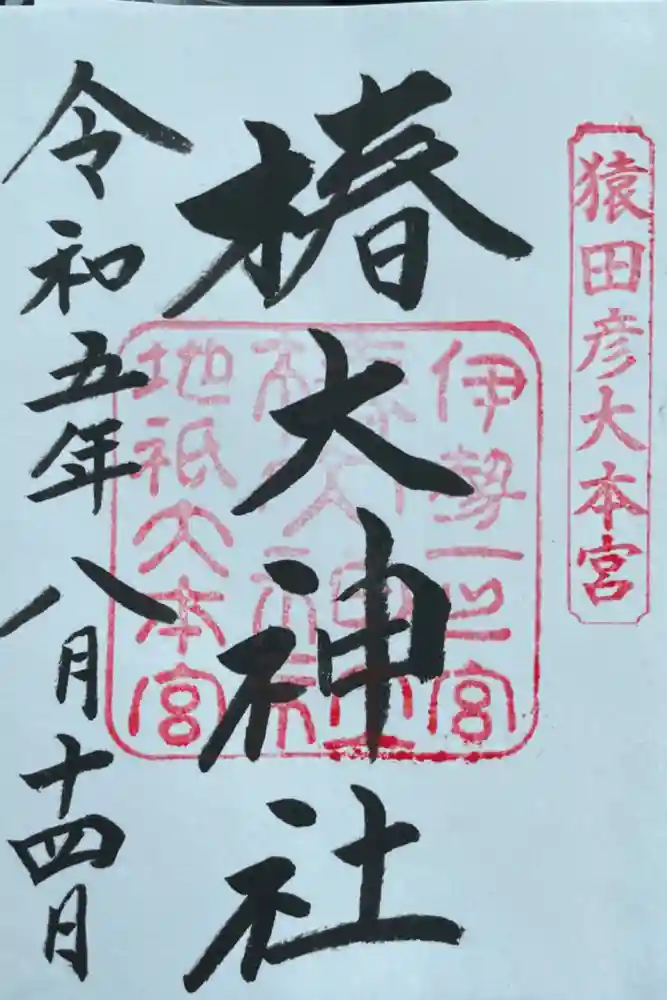 猿田彦大本宮
伊勢一之宮
地祇大本宮
椿大神社
令和五年八月十四日